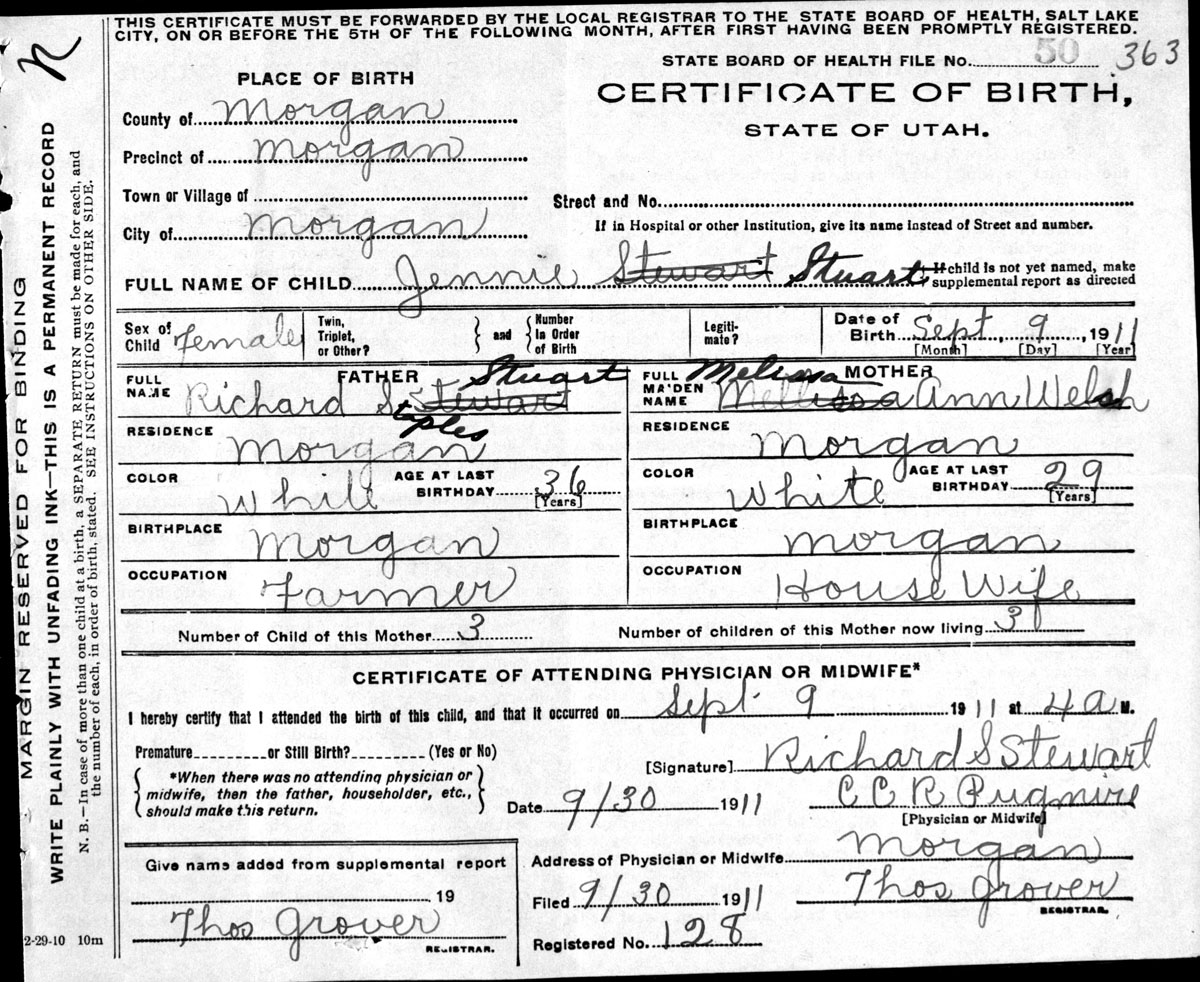 THIS CERTIFICATE MUST BE FORWARDED BY THE LOCAL REGISTRAR TO THE STATE BOARD OF HEALTH, SALT LAKE
CITY, ON OR BEFORE THE 5TH OF THE FOLLOWING MONTH, AFTER FIRST HAVING BEEN PROMPTLY REGISTERED.
STATE BOARD OF HEALTH FILE No. 50 363
PLACE OF BIRTH
CERTIFICATE OF BIRTH,
STATE OF UTAH.
County of Morgan
Precinct of Morgan
Town or Village of
Street and No.
City of Morgan
If in Hospital or other Institution, give its name instead of Street and number.
FULL NAME OF CHILD Jennie Stewart Stuart
If child is not yet named, make
supplemental report as directed
Sex of
Child Female
Twin,
Triplet,
or Other?
and
Number
in Order
of Birth
Legiti-
mate?
Date of
Birth Sept 9, 1911
[Month] [Day] [Year]
FATHER
FULL
NAME Richard Staples Stewart Stuart
MOTHER
FULL
MAIDEN
NAME Mellissa Melissa Ann Welsh
RESIDENCE Morgan
RESIDENCE Morgan
COLOR White
AGE AT LAST
BIRTHDAY 36
[Years]
COLOR White
AGE AT LAST
BIRTHDAY 29
[Years]
BIRTHPLACE Morgan
BIRTHPLACE Morgan
OCCUPATION Farmer
OCCUPATION House Wife
Number of Child of this Mother 3
Number of children of this Mother now living 3
CERTIFICATE OF ATTENDING PHYSICIAN OR MIDWIFE*
I hereby certify that I attended the birth of this child, and that it occurred on Sept. 9 1911 at 4 a M.
Premature or Still Birth? (Yes or No)
*When there was no attending physician or
midwife, then the father, householder, etc.,
should make this return.
[Signature] Richard S Stewart
Date 9/30 1911
C C R Pugmire
[Physician or Midwife]
Give name added from supplemental report
19
Thos Grover
REGISTRAR.
Address of Physician or Midwife Morgan
Filed 9/30 1911 Thos Grover
REGISTRAR.
Registered No. 128
2-29-10 10m
MARGIN RESERVED FOR BINDING
WRITE PLAINLY WITH UNFADING INK—THIS IS A PERMANENT RECORD
N. B.—In case of more than one child at a birth, a SEPARATE RETURN must be made for each, and
the number of each, in order of birth, stated. SEE INSTRUCTIONS ON OTHER SIDE.